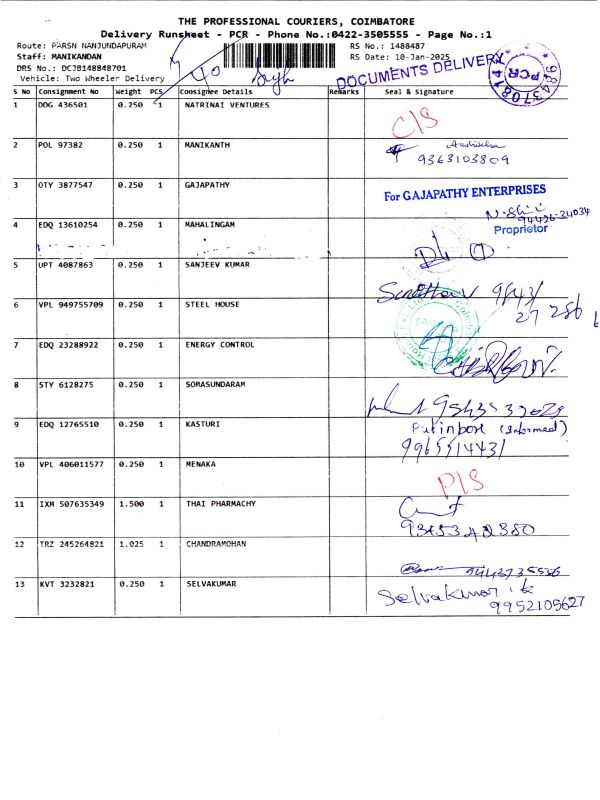 THE PROFESSIONAL COURIERS, COIMBATORE
Delivery Runsheet - PCR - Phone No.:0422-3505555 - Page No.:1
Route: PARSN NANJUNDAPURAM RS No.: 1488487
Staff: MANIKANDAN RS Date: 10-Jan-2025
DRS No.: DCJB148848701 DOCUMENTS DELIVERY
Vehicle: Two Wheeler Delivery
PCR
S No Consignment No Weight PCS Consignee Details Remarks Seal & Signature
1 DDG 436501 0.250 1 NATRINAI VENTURES C/S
2 POL 97382 0.250 1 MANIKANTH
9363103809
3 OTY 3877547 0.250 1 GAJAPATHY For GAJAPATHY ENTERPRISES
94426-34034
Proprietor
4 EDQ 13610254 0.250 1 MAHALINGAM
5 UPT 4087863 0.250 1 SANJEEV KUMAR
6 VPL 949755709 0.250 1 STEEL HOUSE
7 EDQ 23288922 0.250 1 ENERGY CONTROL
8 STY 6128275 0.250 1 SOMASUNDARAM
9 EDQ 12765510 0.250 1 KASTURI Put in box (Informed)
10 VPL 406011577 0.250 1 MENAKA P/S
11 IXM 507635349 1.500 1 THAI PHARMACHY
9345342380
12 TRZ 245264821 1.025 1 CHANDRAMOHAN
13 KVT 3232821 0.250 1 SELVAKUMAR Selvakumar
9952105627